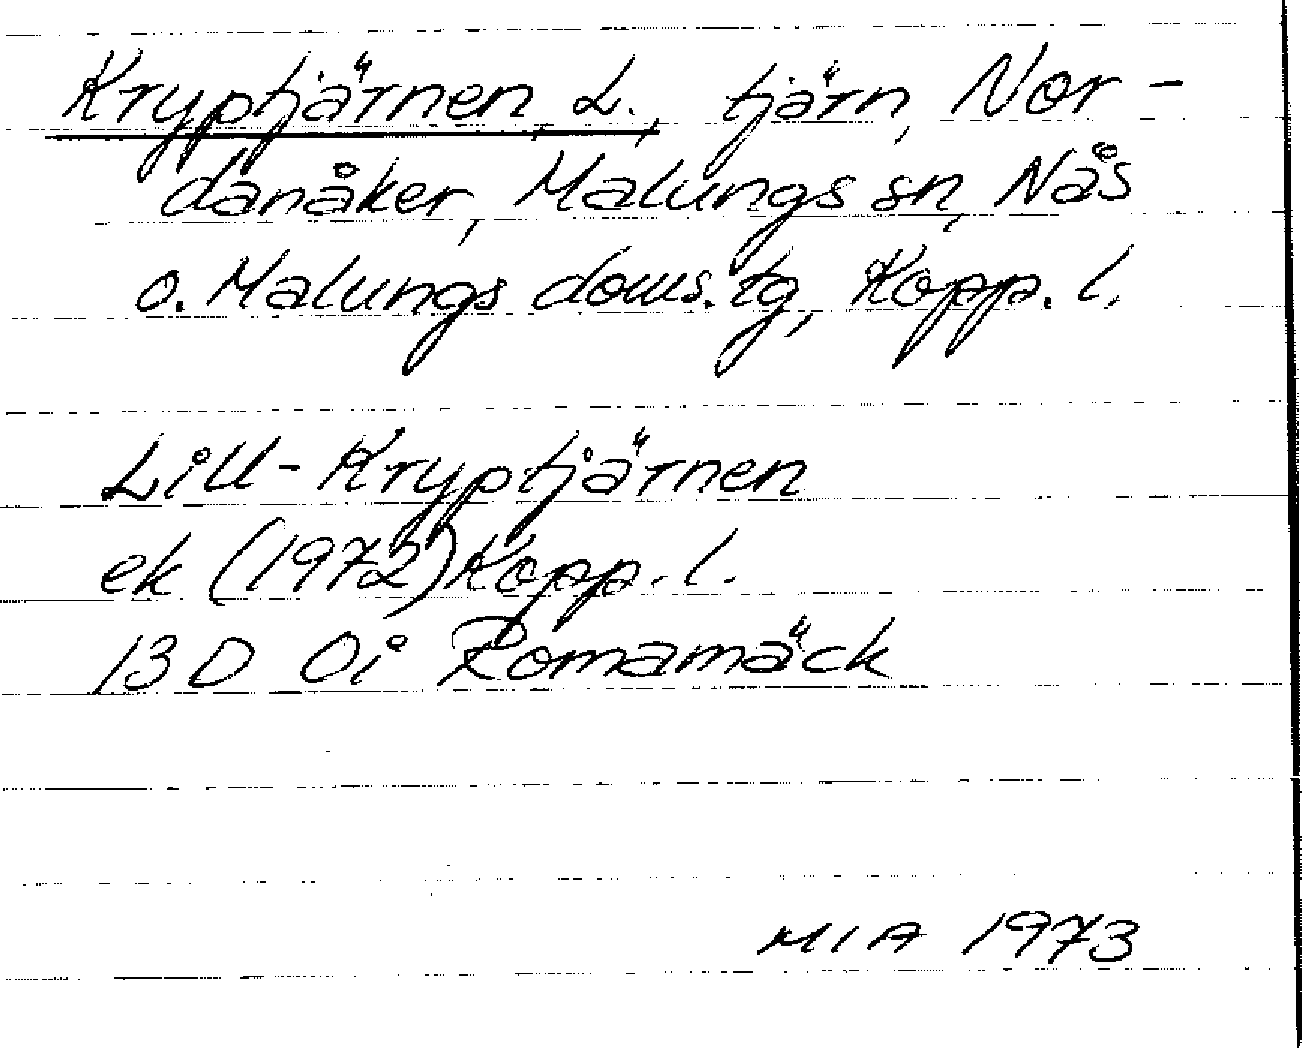 Kryptjärnen, L., tjärn, Nor-
danåker, Malungs sn, Nås
o. Malungs doms. tg, Kopp. l.
Lill-Kryptjärnen
ek (1972) Kopp. l.
13 D 0i Romamäck
MIA 1973